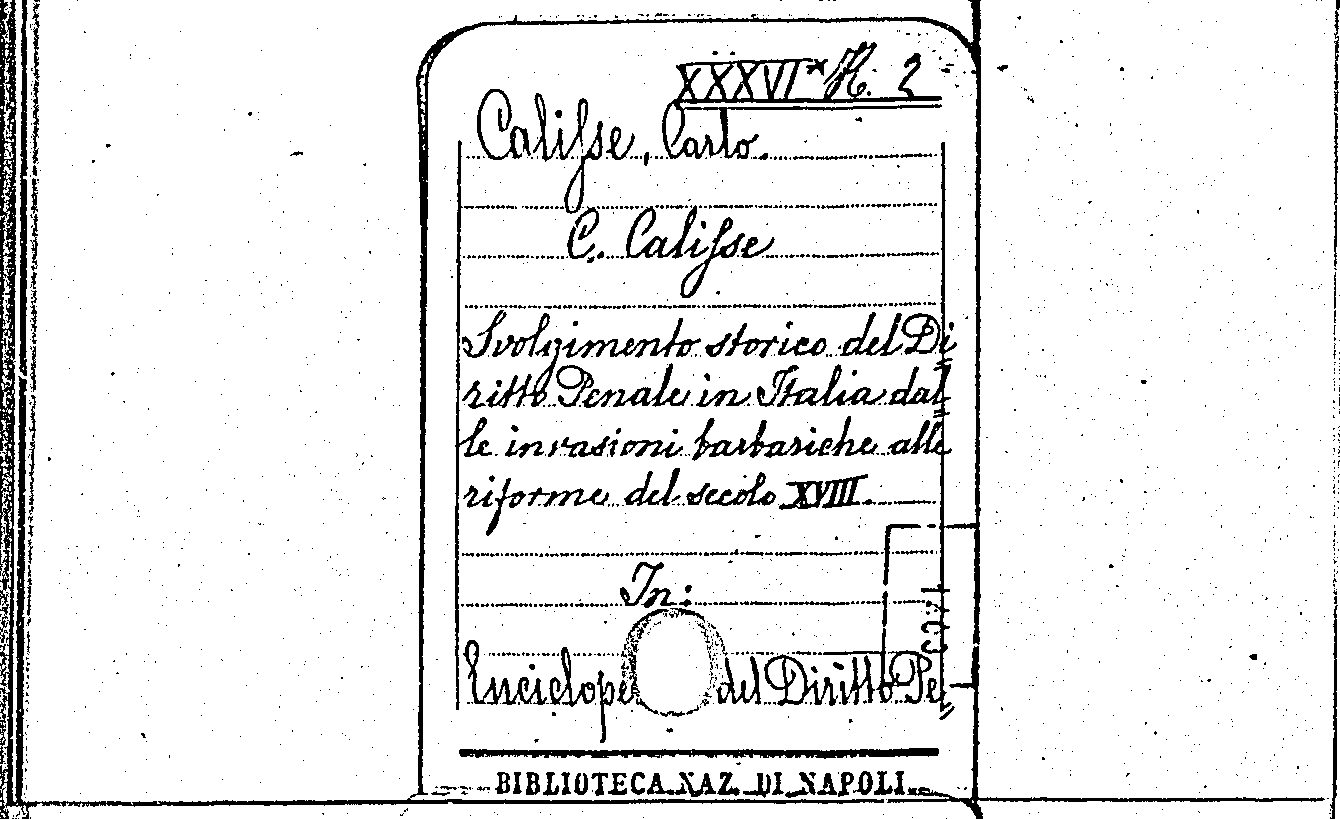 XXXVI* H. 2
Calisse, Carlo.
C. Calisse
Svolgimento storico del Di
ritto Penale in Italia dal
le invasioni barbariche alle
riforme del secolo XVIII.
In:
Enciclope del Diritto Pe
BIBLIOTECA NAZ. DI NAPOLI